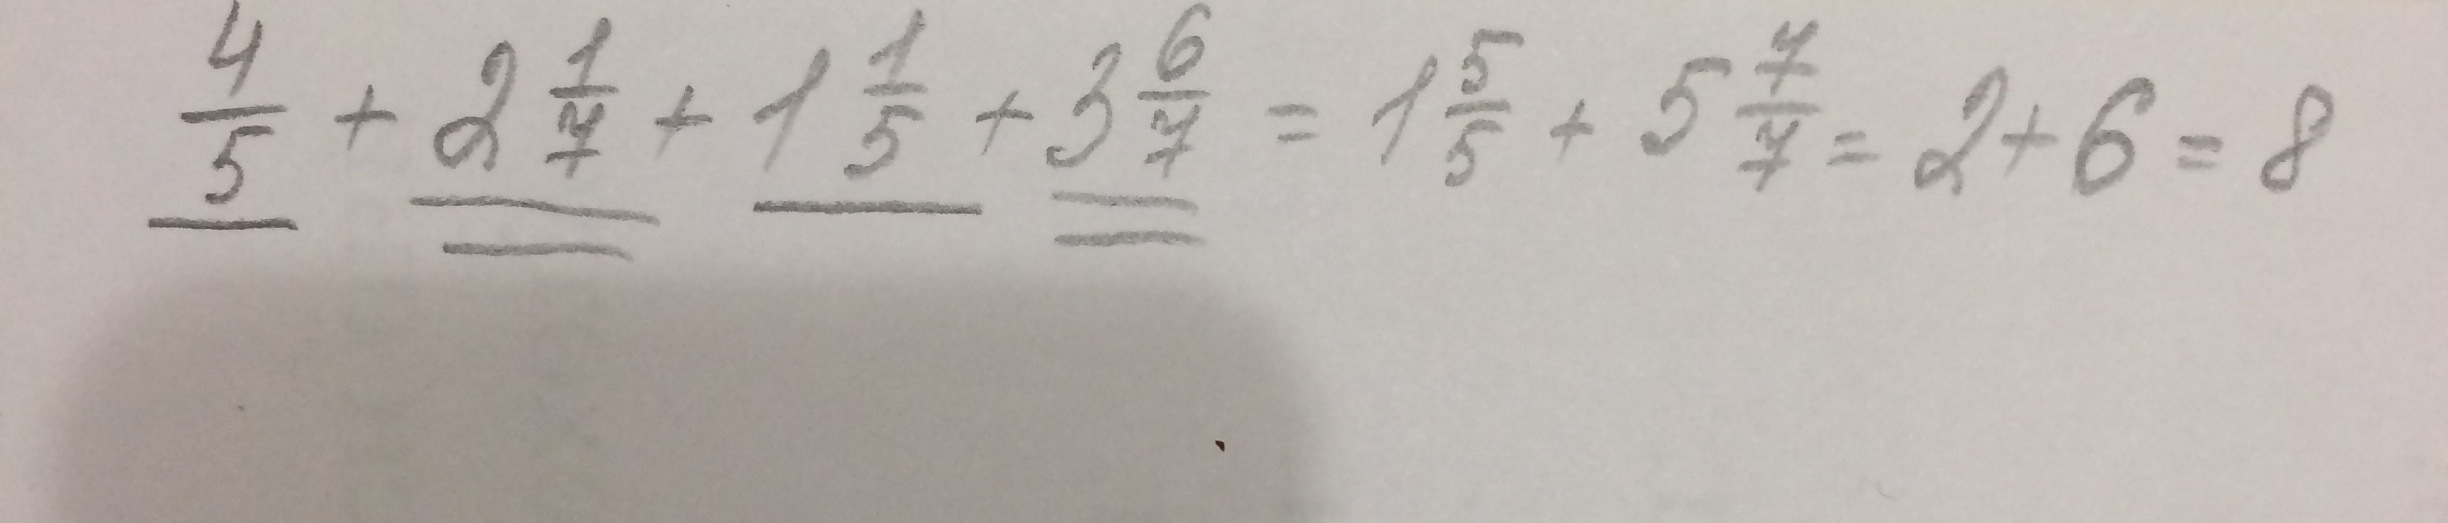 4/5 + 2 1/7 + 1 1/5 + 3 6/7 = 1 5/5 + 5 7/7 = 2 + 6 = 8